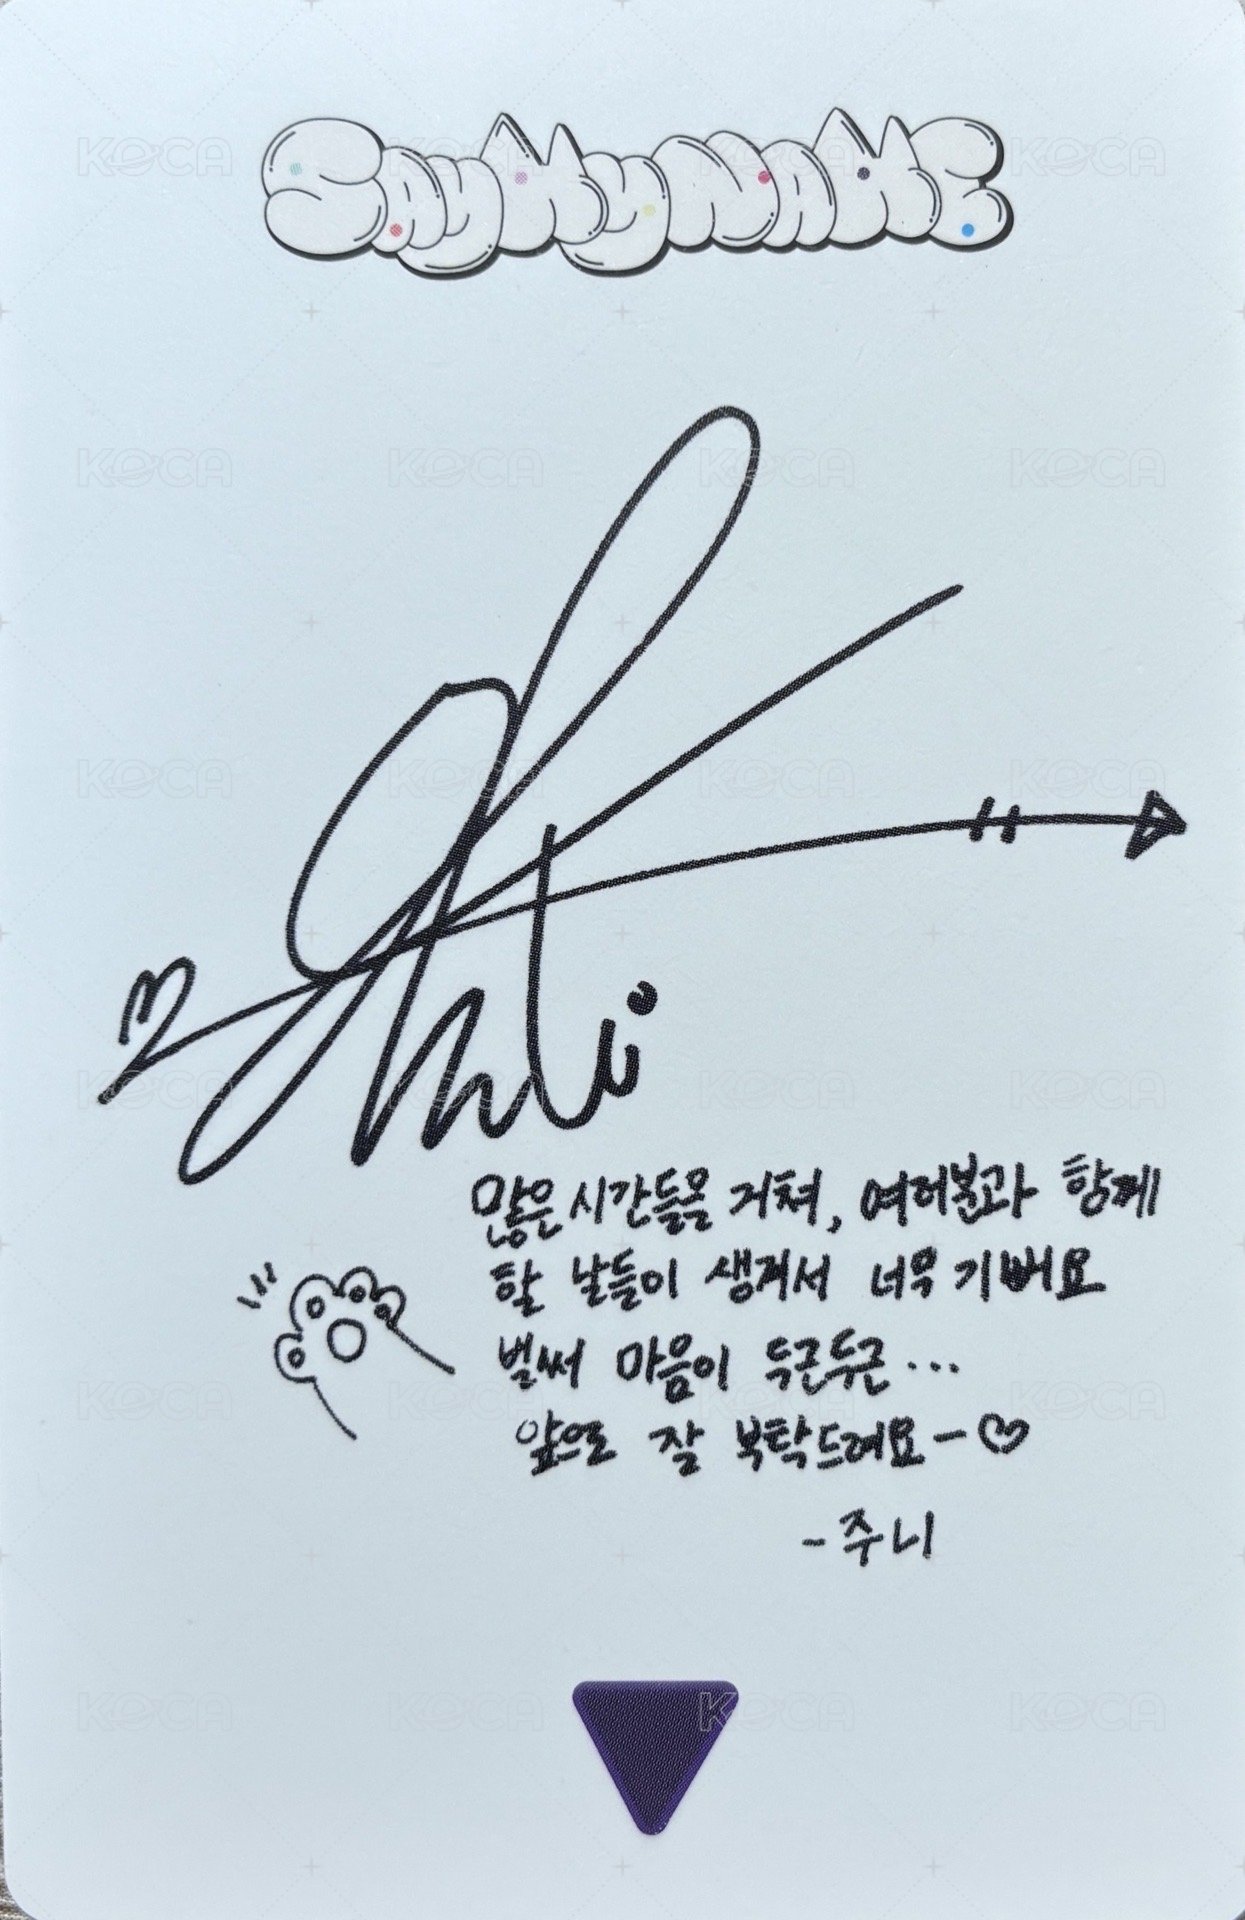 SAYMYNAME
많은 시간들을 거쳐, 여러분과 함께
할 날들이 생겨서 너무 기뻐요
벌써 마음이 두근두근...
앞으로 잘 부탁드려요-♡
-주니
KOCA